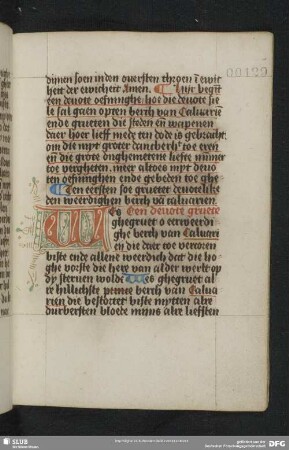 dinen soen in den ouersten thꝛoen ī ewic
heit der ewicheit Amen. Hier begīt
een deuote oefninghe hoe die deuote sie
le sal gaen op den berch van Caluariē
ende grueten die steden eñ wapenen
daer hoer lieff mede ten dode is gebracht
om die mȳt groter dancberheꝫ toe eren
eñ die grote onghemetene liefte nūmer
toe vergheten. meer altoes mȳt deuo
ten oefninghen ende gebeden toe ghe
Ten eersten soe grueter deuotelike
den weerdighen berch vā caluarien.
WEs Een deuote gruete
ghegruet o eerweerdi
ghe berch van Caluari
en die daer toe vercoren
biste ende allene weerdich dat die ho
ghe voꝛste die here van alder werlt op
dy steruen wolde Wes ghegruet al
re hillichste berch van Calua
rien die bestoꝛtet biste mytten alre
duerbersten bloede mijns alre liefsten
00129
SLUB
DFG